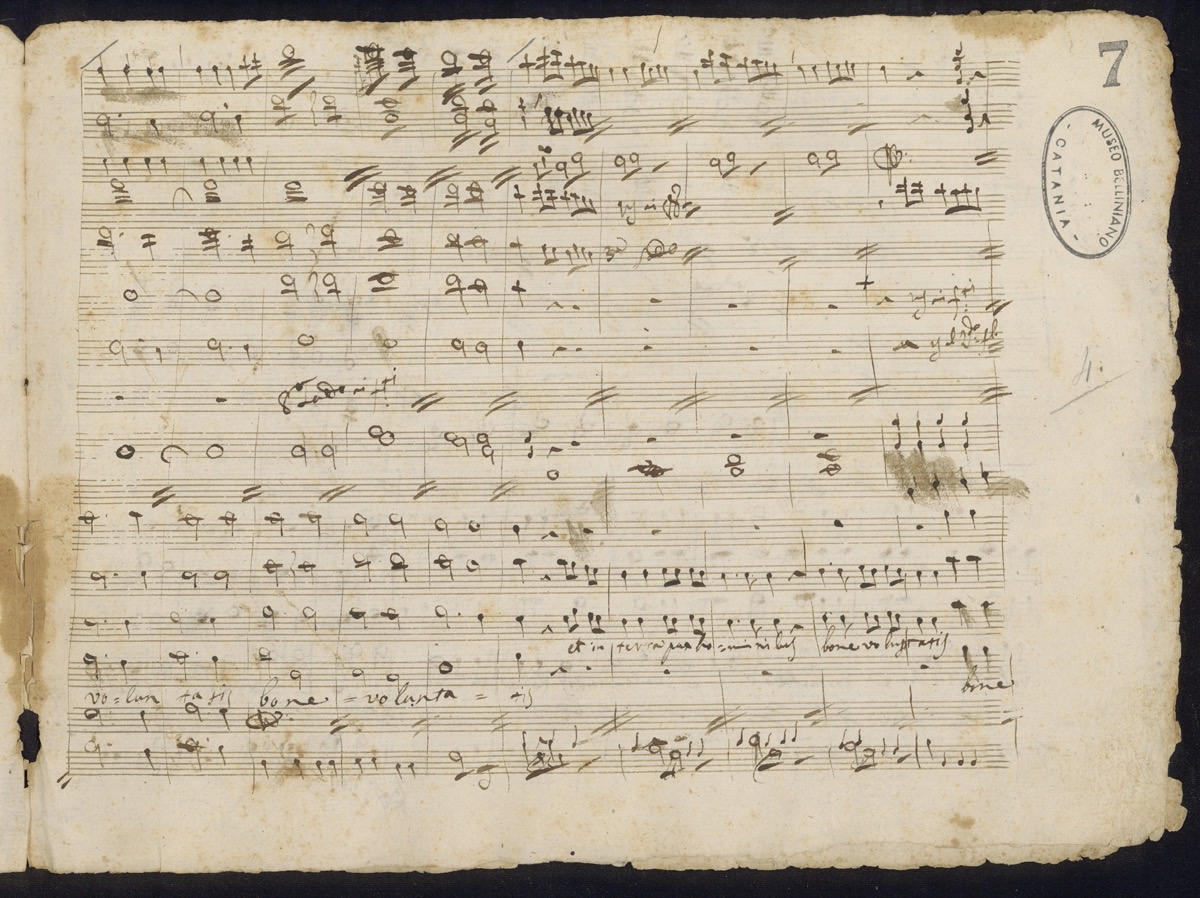 7
MUSEO BELLINIANO
- CATANIA -
4.
et in terra pax ho=minibus bone voluptatis
vo=lun tatis bone =volunta = tis
bone